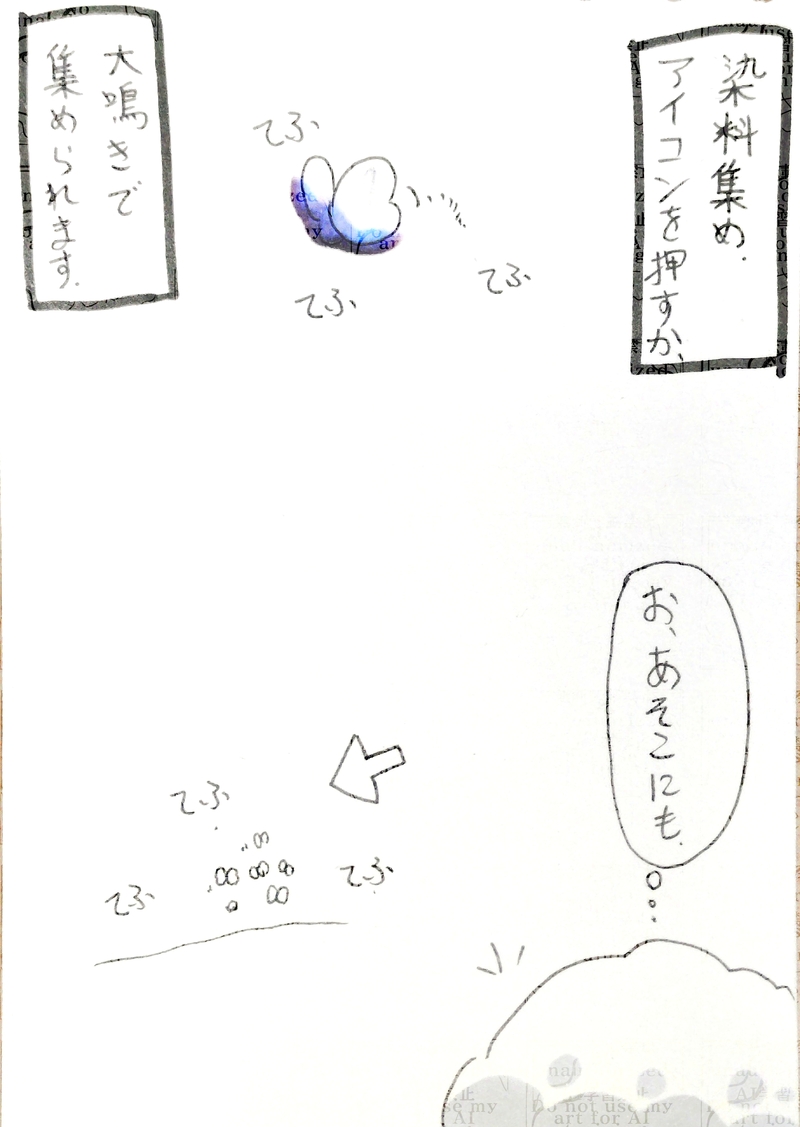 染料集め.
アイコンを押すか、
大鳴きで
集められます.
てふ
てふ
てふ
お、あそこにも.
てふ
てふ
てふ
Do not use my
art for AI